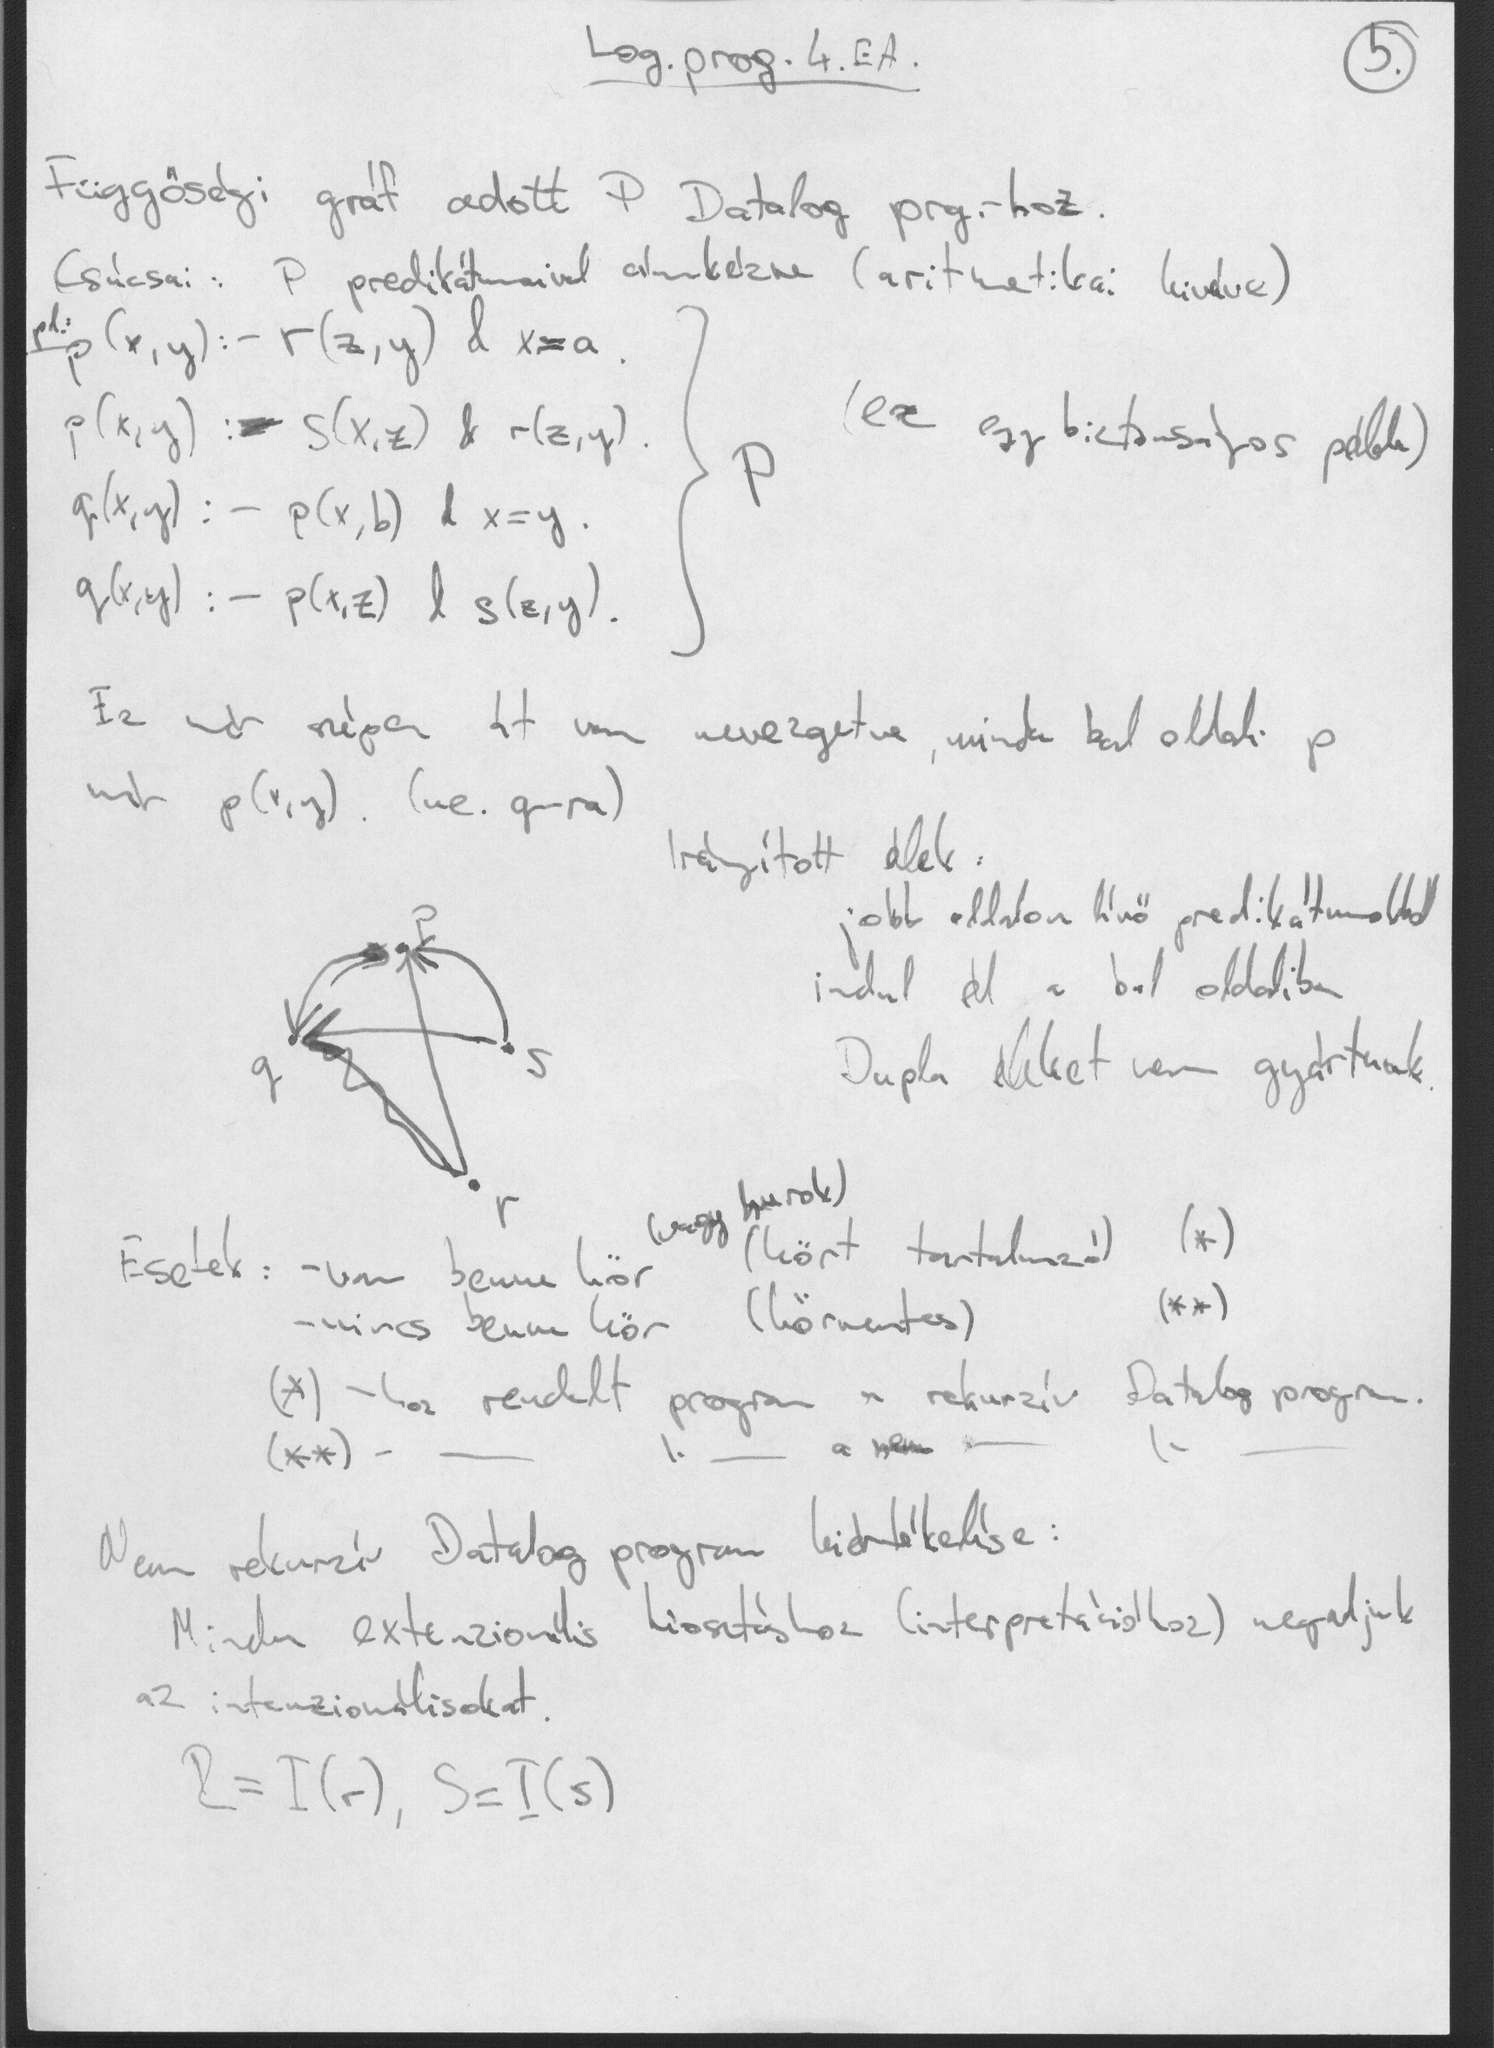 Log. prog. 4. EA.
5.
Függőségi gráf adott P Datalog prg.-hoz.
Csúcsai: P predikátumaival címkézve (aritmetikai kivéve)
pl.:
p(x,y) :- r(z,y) & x=a.
p(x,y) :- s(x,z) & r(z,y).
q(x,y) :- p(x,b) & x=y.
q(x,y) :- p(x,z) & s(z,y).
P
(ez egy biztonságos példa)
Ez már szépen át van nevezgetve, minden bal oldali p
már p(x,y). (ue. q-ra)
Irányított élek:
jobb oldalon lévő predikátumokból
indul él a bal oldaliba
Dupla éleket nem gyártunk.
p
q
s
r
(vagy hurok)
Esetek: - van benne kör (kört tartalmazó) (*)
- nincs benne kör (körmentes) (**)
(*) -hoz rendelt program a rekurzív Datalog program.
(**) - — " — a nem — " —
Nem rekurzív Datalog program kiértékelése:
Minden extenzionális kiosztáshoz (interpretációhoz) megadjuk
az intenzionálisokat.
R = I(r), S = I(s)